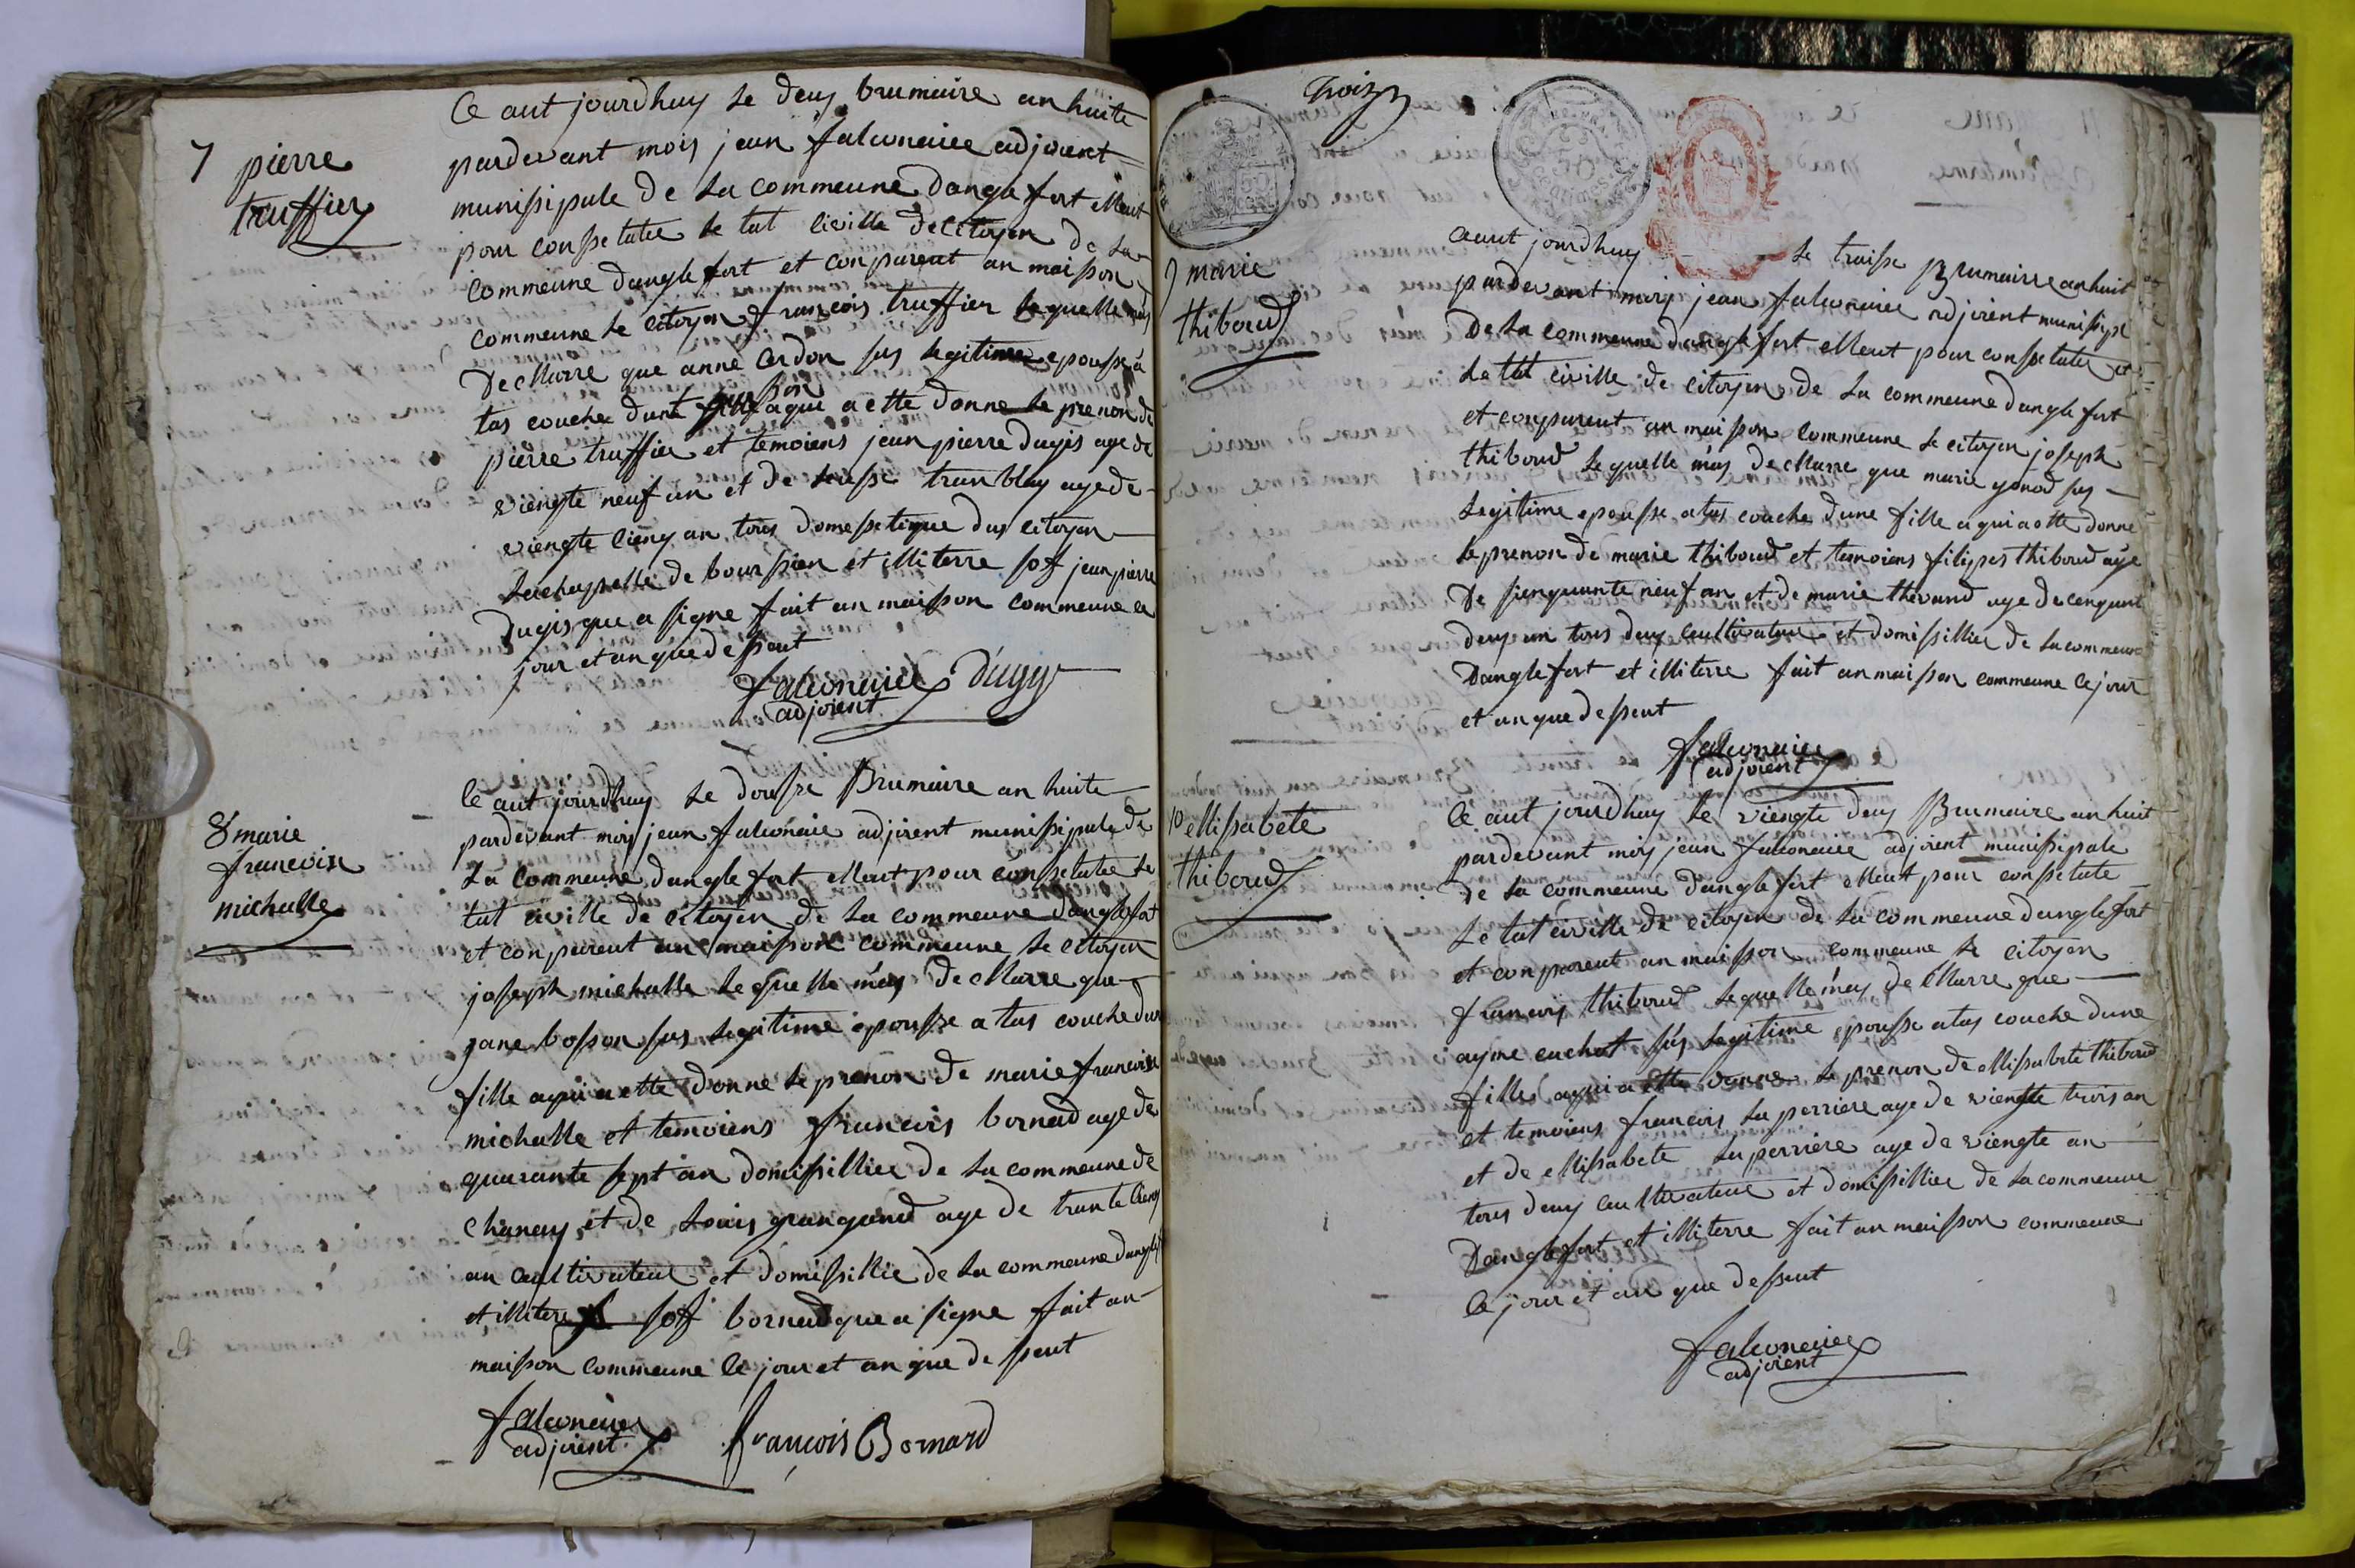 7 pierre
truffier
Ce aut jourdhuy le deuy brumaire an huite
pardevant mois jean falconaiee adjoient
munissipale de la commeune dangle fort elleut
pour conssetatee le tat civille de citoyen de la
commeune dangle fort et conparent an maisson
commeune le citoyen francois truffier lequelle mas
decllarre que anne cardon sas legitime epousse a
tas couche dunt garsson a qui a ette donne le prenon de
pierre truffier et temoiens jean pierre dugis age de
viengte neuf an et de tranblay age de
viengte cienq an tous domessetique dus citoyen
lachappelle de et illiterre sof jean pierre
dugis que a signe fait an maisson commeune ce
jour et an que dessent
falconaiee dugy
adjoient
8 marie
francoisse
michalle
Ce aut jourdhuy le dousse Brumaire an huite
pardevant moy jean falconaiee adjoient munissipale de
la commeune dangle fort elleut pour conssetatee le
tat civille de citoyen de la commeune dangle fort
et conparent an maisson commeune le citoyen
josseph michalle lequelle mas decllarre que
jane bosson sas legitime epousse a tas couche dune
fille a qui a ette donne le prenon de marie francoisse
michalle et temoiens francois bornad age de
quarante sept an domissilliee de la commeune de
chanay et de louis grangand age de trante cienq
an cultivateur et domissillie de la commeune dangle
et illitere sof bornad que a signe fait an
maisson commeune ce jour et an que dessent
falconaiee françois Bornard
adjoient
troize
50
CENTIMES
9 marie
thiboud
Ce aut jourdhuy le traisse Brumairre an huit
pardevant moy jean falconaiee adjoient munissipl
de la commeune dangle fort elleut pour conssetatee
le tat civille de citoyen de la commeune dangle fort
et conparent an maisson commeune le citoyen joseph
thiboud lequelle mas decllarre que marie yonod sas
legitime epousse a tas couche dune fille a qui a ette donne
le prenon de marie thiboud et temoiens filippes thiboud age
de sienquante neuf an et de marie thevand age de cenquant
deuy an tous deuy cultivateur et domissilliee de la commeune
dangle fort et illiterre fait an maisson commeune ce jour
et an que dessent
falconaiee
adjoient
10 ellisabete
thiboud
Ce aut jourdhuy le viengte deuy Brumaire an huit
pardevant moy jean falconaiee adjoient munissipale
de la commeune dangle fort elleut pour conssetate
le tat civille de citoyen de la commeune dangle fort
et conparent an maisson commeune le citoyen
francois thiboud lequelle mas decllarre que
ayme cuchet sas legitime epousse a tas couche dune
fille a qui a ette donne le prenon de ellisabete thiboud
et temoiens francois la perriere age de viengte trois an
et de ellisabete la perriere age de viengte an
tous deuy cultivateur et domissilliee de la commeune
dangle fort et illiterre fait an maisson commeune
ce jour et an que dessent
falconaiee
adjoient